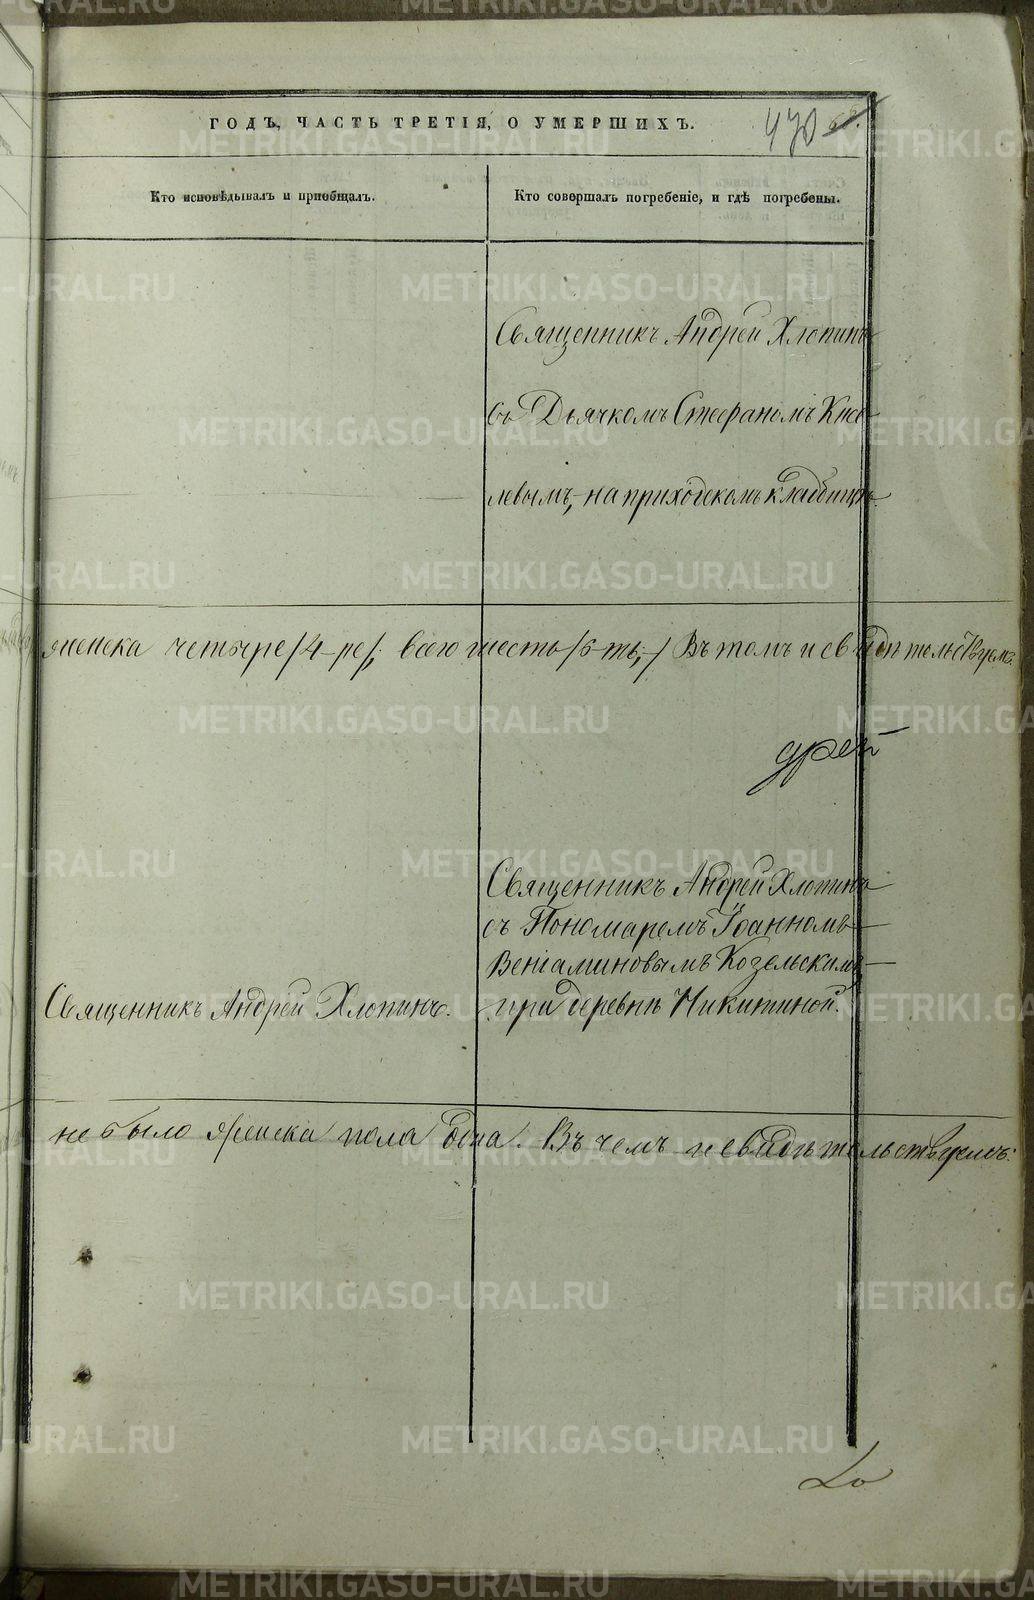 ГОДЪ, ЧАСТЬ ТРЕТІЯ, О УМЕРШИХЪ.
470
Кто исповѣдывалъ и пріобщалъ.
Кто совершалъ погребеніе, и гдѣ погребены.
Священникъ Андрей Хлопинъ
съ Дьячкомъ Стефаномъ Кисе-
левымъ, на приходскомъ кладбищѣ.
женска четыре /4-ре/, всего шесть /6-ть./ Въ томъ и свидѣтельствуемъ
дрей
Священникъ Андрей Хлопинъ
съ Пономаремъ Іоанномъ
Веніаминовымъ Козельскимъ
при деревнѣ Никитиной.
Священникъ Андрей Хлопинъ.
не было женска пола одна. Въ чемъ и свидѣтельствуемъ:
METRIKI.GASO-URAL.RU